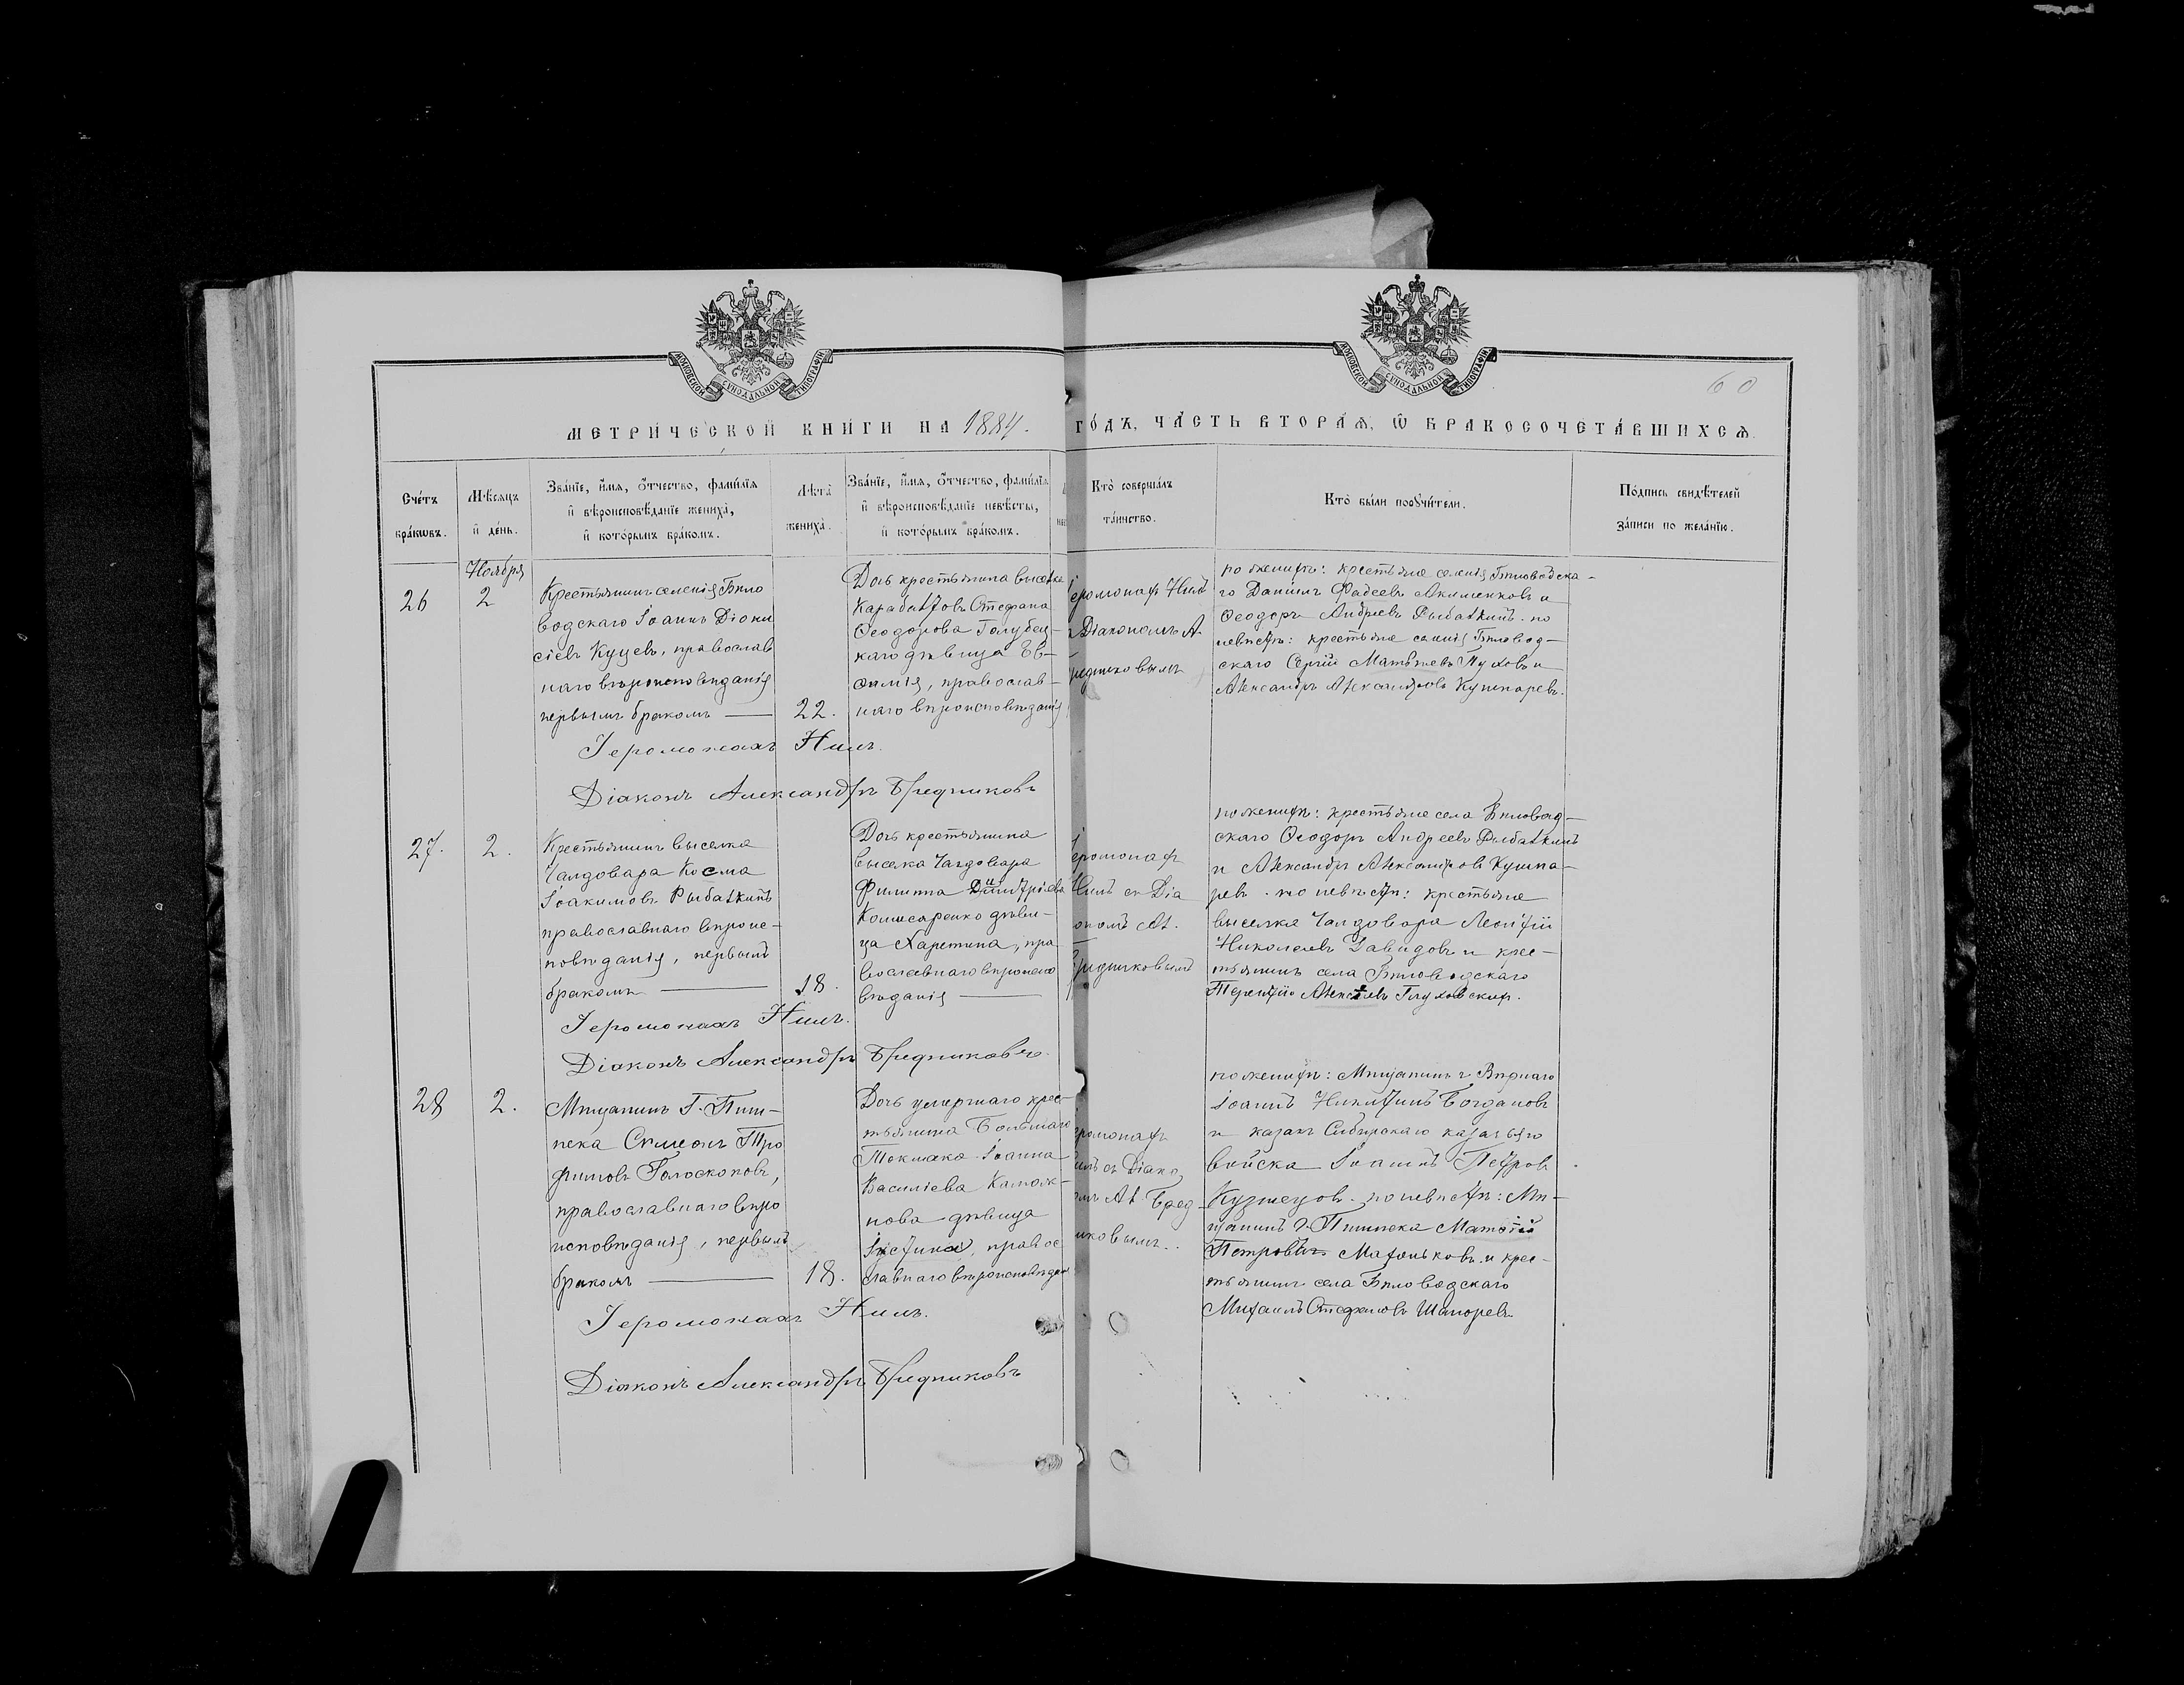 МОСКОВСКОЙ СУНОДАЛЬНОЙ ТИПОГРАФІИ
МОСКОВСКОЙ СУНОДАЛЬНОЙ ТИПОГРАФІИ
60
МЕТРИ́ЧЕСКОЙ КНИ́ГИ НА 1884.
ГО́ДЪ, ЧА́СТЬ ВТОРА́Я, Ѡ БРАКОСОЧЕТА́ВШИХСЯ.
Сче́тъ
бра́кѡвъ.
Мѣ́сяцъ
и де́нь.
Зва́нїе, и́мя, о́тчество, фами́лїя
и вѣроисповѣ́данїе жениха̀,
и кото́рымъ бра́комъ.
Лѣта̀
жениха̀.
Зва́нїе, и́мя, о́тчество, фами́лїя
и вѣроисповѣ́данїе невѣ́сты,
и кото́рымъ бра́комъ.
Кто̀ соверша́лъ
та́инство.
Кто̀ бы́ли порꙋчи́тели.
По́дпись свидѣ́телей
за́писи по жела́нїю.
Ноября
26
2
Крестьянинъ селенія Бѣло
водскаго Іоаннъ Діони
сіевъ Куцевъ, православ
наго вѣроисповѣданія
первымъ бракомъ —
22.
Дочь крестьянина выселка
Карабалтовъ Стефана
Ѳеодорова Голубец-
каго дѣвица Ев-
фимія, православ-
наго вѣроисповѣданія
еромонахъ Нилъ
Діакономъ А.
редниковымъ
по женихѣ: крестьяне селенія Бѣловодска-
го Даніилъ Фадеевъ Акименковъ и
Ѳеодоръ Андреевъ Рыбалкинъ. по
невѣстѣ: крестьяне селенія Бѣловод-
скаго Сергій Матвѣевъ Пуховъ и
Александръ Александровъ Кушнаревъ.
Іеромонахъ Нилъ.
Діаконъ Александръ Бредниковъ
27.
2.
Крестьянинъ выселка
Чалдовара Косма
Іоакимовъ Рыбалкинъ
православнаго вѣроис-
повѣданія, первымъ
бракомъ —
18.
Дочь крестьянина
выселка Чалдовара
Филиппа Димитріева
Комисаренко дѣви-
ца Харетина, пра
вославнаго вѣроиспо
вѣданія —
еромонахъ
Нилъ съ Діа
ономъ Ал.
Бредниковымъ
по женихѣ: крестьяне села Бѣловод-
скаго Ѳеодоръ Андреевъ Рыбалкинъ
и Александръ Александровъ Кушна-
ревъ. по невѣстѣ: крестьяне
выселка Чалдовара Леонтій
Николаевъ Давидовъ и крес-
тьянинъ села Бѣловодскаго
Терентій Алексѣевъ Глуховских.
Іеромонахъ Нилъ.
Діаконъ Александръ Бредниковъ.
28
2.
Мѣщанинъ Г. Пиш-
пека Симеонъ Тро
фимовъ Голоскоковъ,
православнаго вѣро
исповѣданія, первымъ
бракомъ —
18.
Дочь умершаго крес-
тьянина Большаго
Токмака Іоанна
Василіева
дѣвица
Іустина, правос
славнаго вѣроисповѣдан
еромонахъ
илъ съ Діако
мъ Ал. Бред-
иковымъ..
по женихѣ: Мѣщанинъ г. Вѣрнаго
Іоаннъ Никитинъ Богдановъ
и казакъ Сибирскаго казачьяго
войска Іоаннъ Петровъ
Кузнецовъ. по невѣстѣ: Мѣ-
щанинъ г. Пишпека Матѳій
Петровъ Маханьковъ и крес-
тьянинъ села Бѣловодскаго
Михаилъ Стефановъ Шапоревъ.
Іеромонахъ Нилъ.
Діаконъ Александръ Бредниковъ